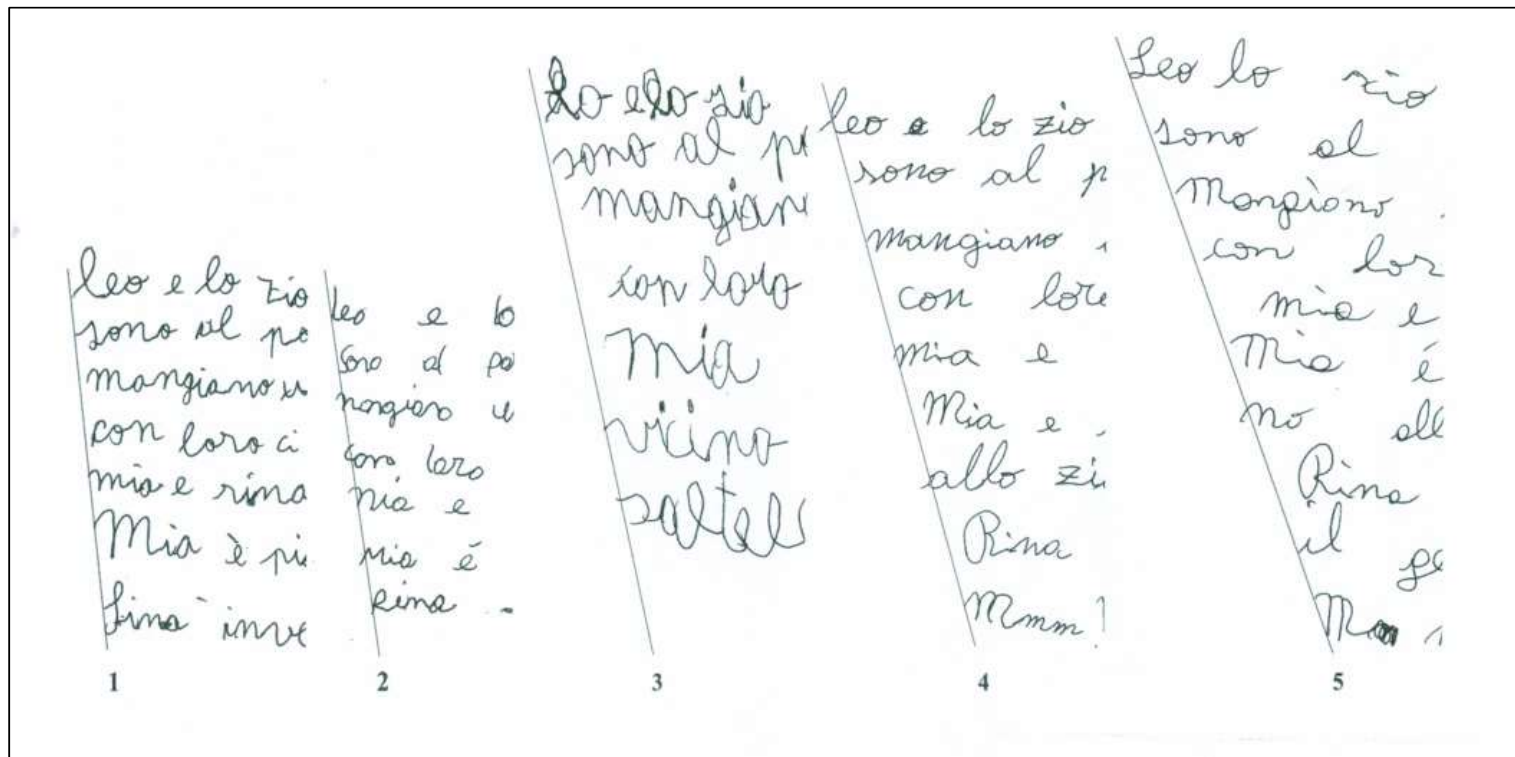 leo e lo zio
sono al po
mangiano
con loro ci
mia e rina
Mia è pi
inve
1
leo e lo
sono al pa
con loro
mia e
mia é
Rina
2
e lo zio
sono al p
mangian
con loro
mia
vicino
saltell
3
leo e lo zio
sono al p
mangiano
con loro
mia e
Mia e
allo zi
Rina
Mmm!
4
Leo lo zio
sono al
Mangiano
con lor
mia e
Mia é
no all
Rina
il ge
5